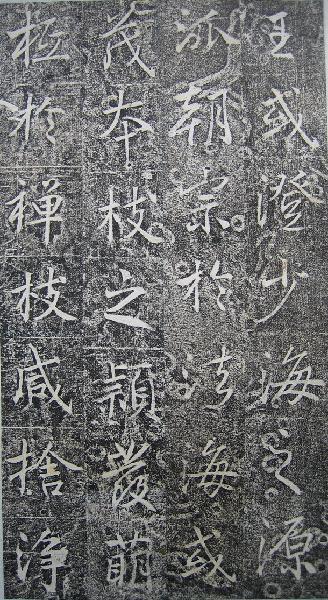 王或澄少海之源
派朝宗於法海或
茂本枝之穎發萌
柢於禪枝咸捨淨